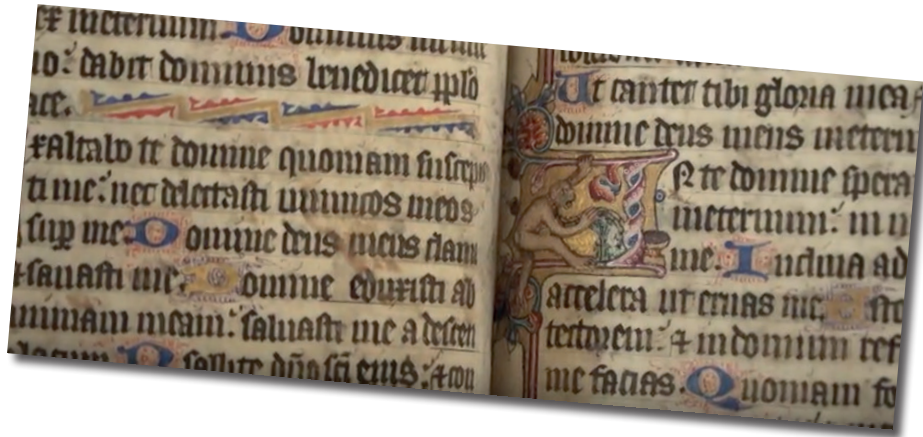 eternum Dominus
dabit dominus benedicet pplo
ace.
xaltabo te domine quoniam suscep
ti me: nec delectasti inimicos meos
sup me Domine deus meus clam
sanasti me. Domine eduxisti ab
animam meam: saluasti me a descen
lacum Psallite dno sci eius: & con
Ut cantet tibi gloria mea
domine deus meus in etern
IN te domine spera
in eternum: in
me. Inclina ad
accelera ut eruas me. Esto
tectorem: & in domum ref
me facias. Quoniam fo